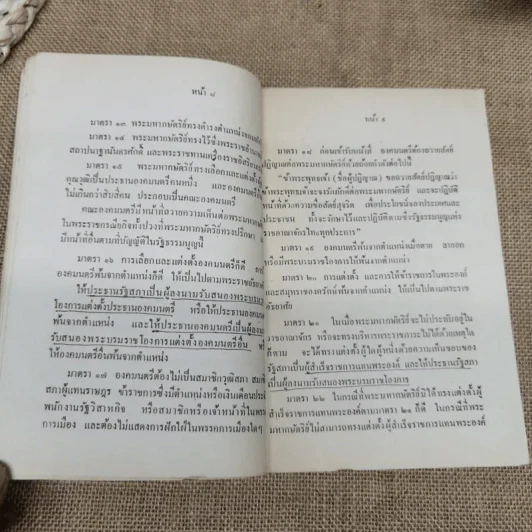 หน้า ๘
มาตรา ๑๓ พระมหากษัตริย์ทรงดำรงตำแหน่งจอมทัพ
มาตรา ๑๔ พระมหากษัตริย์ทรงไว้ซึ่งพระราชอำนาจ
สถาปนาฐานันดรศักดิ์ และพระราชทานเครื่องราชอิสริยาภรณ์
มาตรา ๑๕ พระมหากษัตริย์ทรงเลือกและแต่งตั้ง
คุณวุฒิเป็นประธานองคมนตรีคนหนึ่ง และองคมนตรี
ไม่เกินกว่าสิบสี่คน ประกอบเป็นคณะองคมนตรี
คณะองคมนตรีมีหน้าที่ถวายความเห็นต่อพระมหา
ในพระราชกรณียกิจทั้งปวงที่พระมหากษัตริย์ทรงปรึกษา
มีหน้าที่อื่นตามที่บัญญัติในรัฐธรรมนูญนี้
มาตรา ๑๖ การเลือกและแต่งตั้งองคมนตรีก็ดี การ
องคมนตรีพ้นจากตำแหน่งก็ดี ให้เป็นไปตามพระราชอัธยา
ให้ประธานรัฐสภาเป็นผู้ลงนามรับสนองพระบรมรา
โองการแต่งตั้งประธานองคมนตรี หรือให้ประธานองคมนตรี
พ้นจากตำแหน่ง และให้ประธานองคมนตรีเป็นผู้ลงนาม
รับสนองพระบรมราชโองการแต่งตั้งองคมนตรีอื่น หรือ
ให้องคมนตรีอื่นพ้นจากตำแหน่ง
มาตรา ๑๗ องคมนตรีต้องไม่เป็นสมาชิกวุฒิสภา สมาชิก
สภาผู้แทนราษฎร ข้าราชการซึ่งมีตำแหน่งหรือเงินเดือนประจำ
พนักงานรัฐวิสาหกิจ หรือสมาชิกหรือเจ้าหน้าที่ในพรรค
การเมือง และต้องไม่แสดงการฝักใฝ่ในพรรคการเมืองใดๆ
หน้า ๙
มาตรา ๑๘ ก่อนเข้ารับหน้าที่ องคมนตรีต้องถวายสัตย์
ปฏิญาณต่อพระมหากษัตริย์ด้วยถ้อยคำดังต่อไปนี้
"ข้าพระพุทธเจ้า (ชื่อผู้ปฏิญาณ) ขอถวายสัตย์ปฏิญาณว่า
ข้าพระพุทธเจ้าจะจงรักภักดีต่อพระมหากษัตริย์ และจะปฏิบัติ
หน้าที่ด้วยความซื่อสัตย์สุจริต เพื่อประโยชน์ของประเทศและ
ประชาชน ทั้งจะรักษาไว้และปฏิบัติตามซึ่งรัฐธรรมนูญแห่ง
ราชอาณาจักรไทยทุกประการ"
มาตรา ๑๙ องคมนตรีพ้นจากตำแหน่งเมื่อตาย ลาออก
หรือมีพระบรมราชโองการให้พ้นจากตำแหน่ง
มาตรา ๒๐ การแต่งตั้ง และการให้ข้าราชการในพระองค์
และสมุหราชองครักษ์พ้นจากตำแหน่ง ให้เป็นไปตามพระราช
อัธยาศัย
มาตรา ๒๑ ในเมื่อพระมหากษัตริย์จะไม่ประทับอยู่ใน
ราชอาณาจักร หรือจะทรงบริหารพระราชภาระไม่ได้ด้วยเหตุใด
ก็ตาม จะได้ทรงแต่งตั้งผู้ใดผู้หนึ่งด้วยความเห็นชอบของ
รัฐสภาเป็นผู้สำเร็จราชการแทนพระองค์ และให้ประธานรัฐสภา
เป็นผู้ลงนามรับสนองพระบรมราชโองการ
มาตรา ๒๒ ในกรณีที่พระมหากษัตริย์มิได้ทรงแต่งตั้งผู้
สำเร็จราชการแทนพระองค์ตามมาตรา ๒๑ ก็ดี ในกรณีที่พระ
มหากษัตริย์ไม่สามารถทรงแต่งตั้งผู้สำเร็จราชการแทนพระองค์